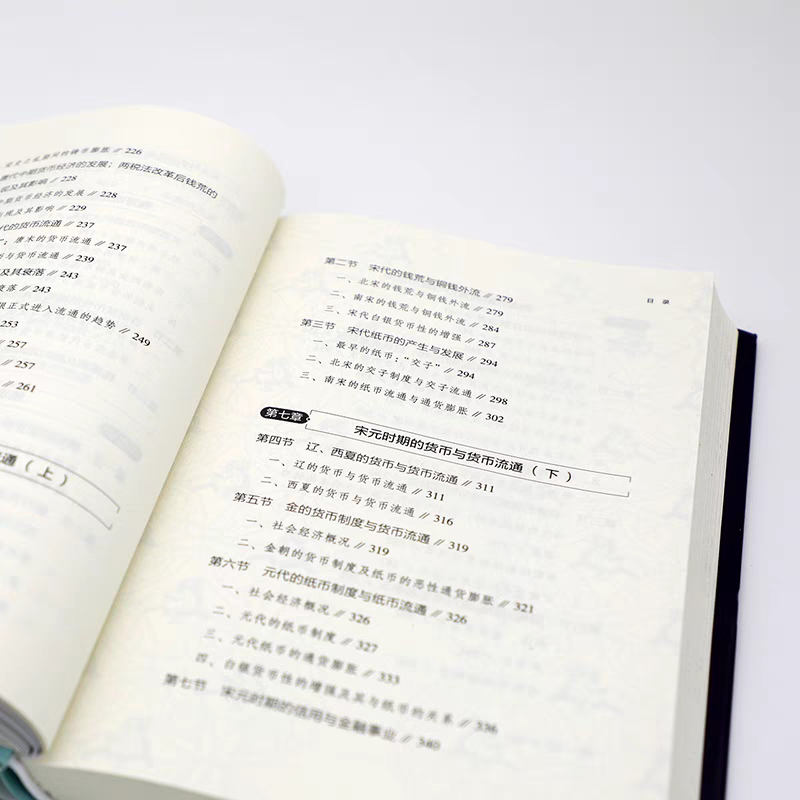 钱币膨胀 // 226
唐代中期货币经济的发展；两税法改革后钱荒的
现及其影响 // 228
货币经济的发展 // 228
出现及其影响 // 229
代的货币流通 // 237
唐末的货币流通 // 237
与货币流通 // 239
及其衰落 // 243
衰落 // 243
银正式进入流通的趋势 // 249
253
// 257
257
// 261
通（上）
目录
第二节 宋代的钱荒与铜钱外流 // 279
一、北宋的钱荒与铜钱外流 // 279
二、南宋的钱荒与铜钱外流 // 284
三、宋代白银货币性的增强 // 287
第三节 宋代纸币的产生与发展 // 294
一、最早的纸币：“交子” // 294
二、北宋的交子制度与交子流通 // 298
三、南宋的纸币流通与通货膨胀 // 302
第七章 宋元时期的货币与货币流通（下）
第四节 辽、西夏的货币与货币流通 // 311
一、辽的货币与货币流通 // 311
二、西夏的货币与货币流通 // 316
第五节 金的货币制度与货币流通 // 319
一、社会经济概况 // 319
二、金朝的货币制度及纸币的恶性通货膨胀 // 321
第六节 元代的纸币制度与纸币流通 // 326
一、社会经济概况 // 326
二、元代的纸币制度 // 327
三、元代纸币的通货膨胀 // 333
四、白银货币性的增强及其与纸币的关系 // 336
第七节 宋元时期的信用与金融事业 // 340